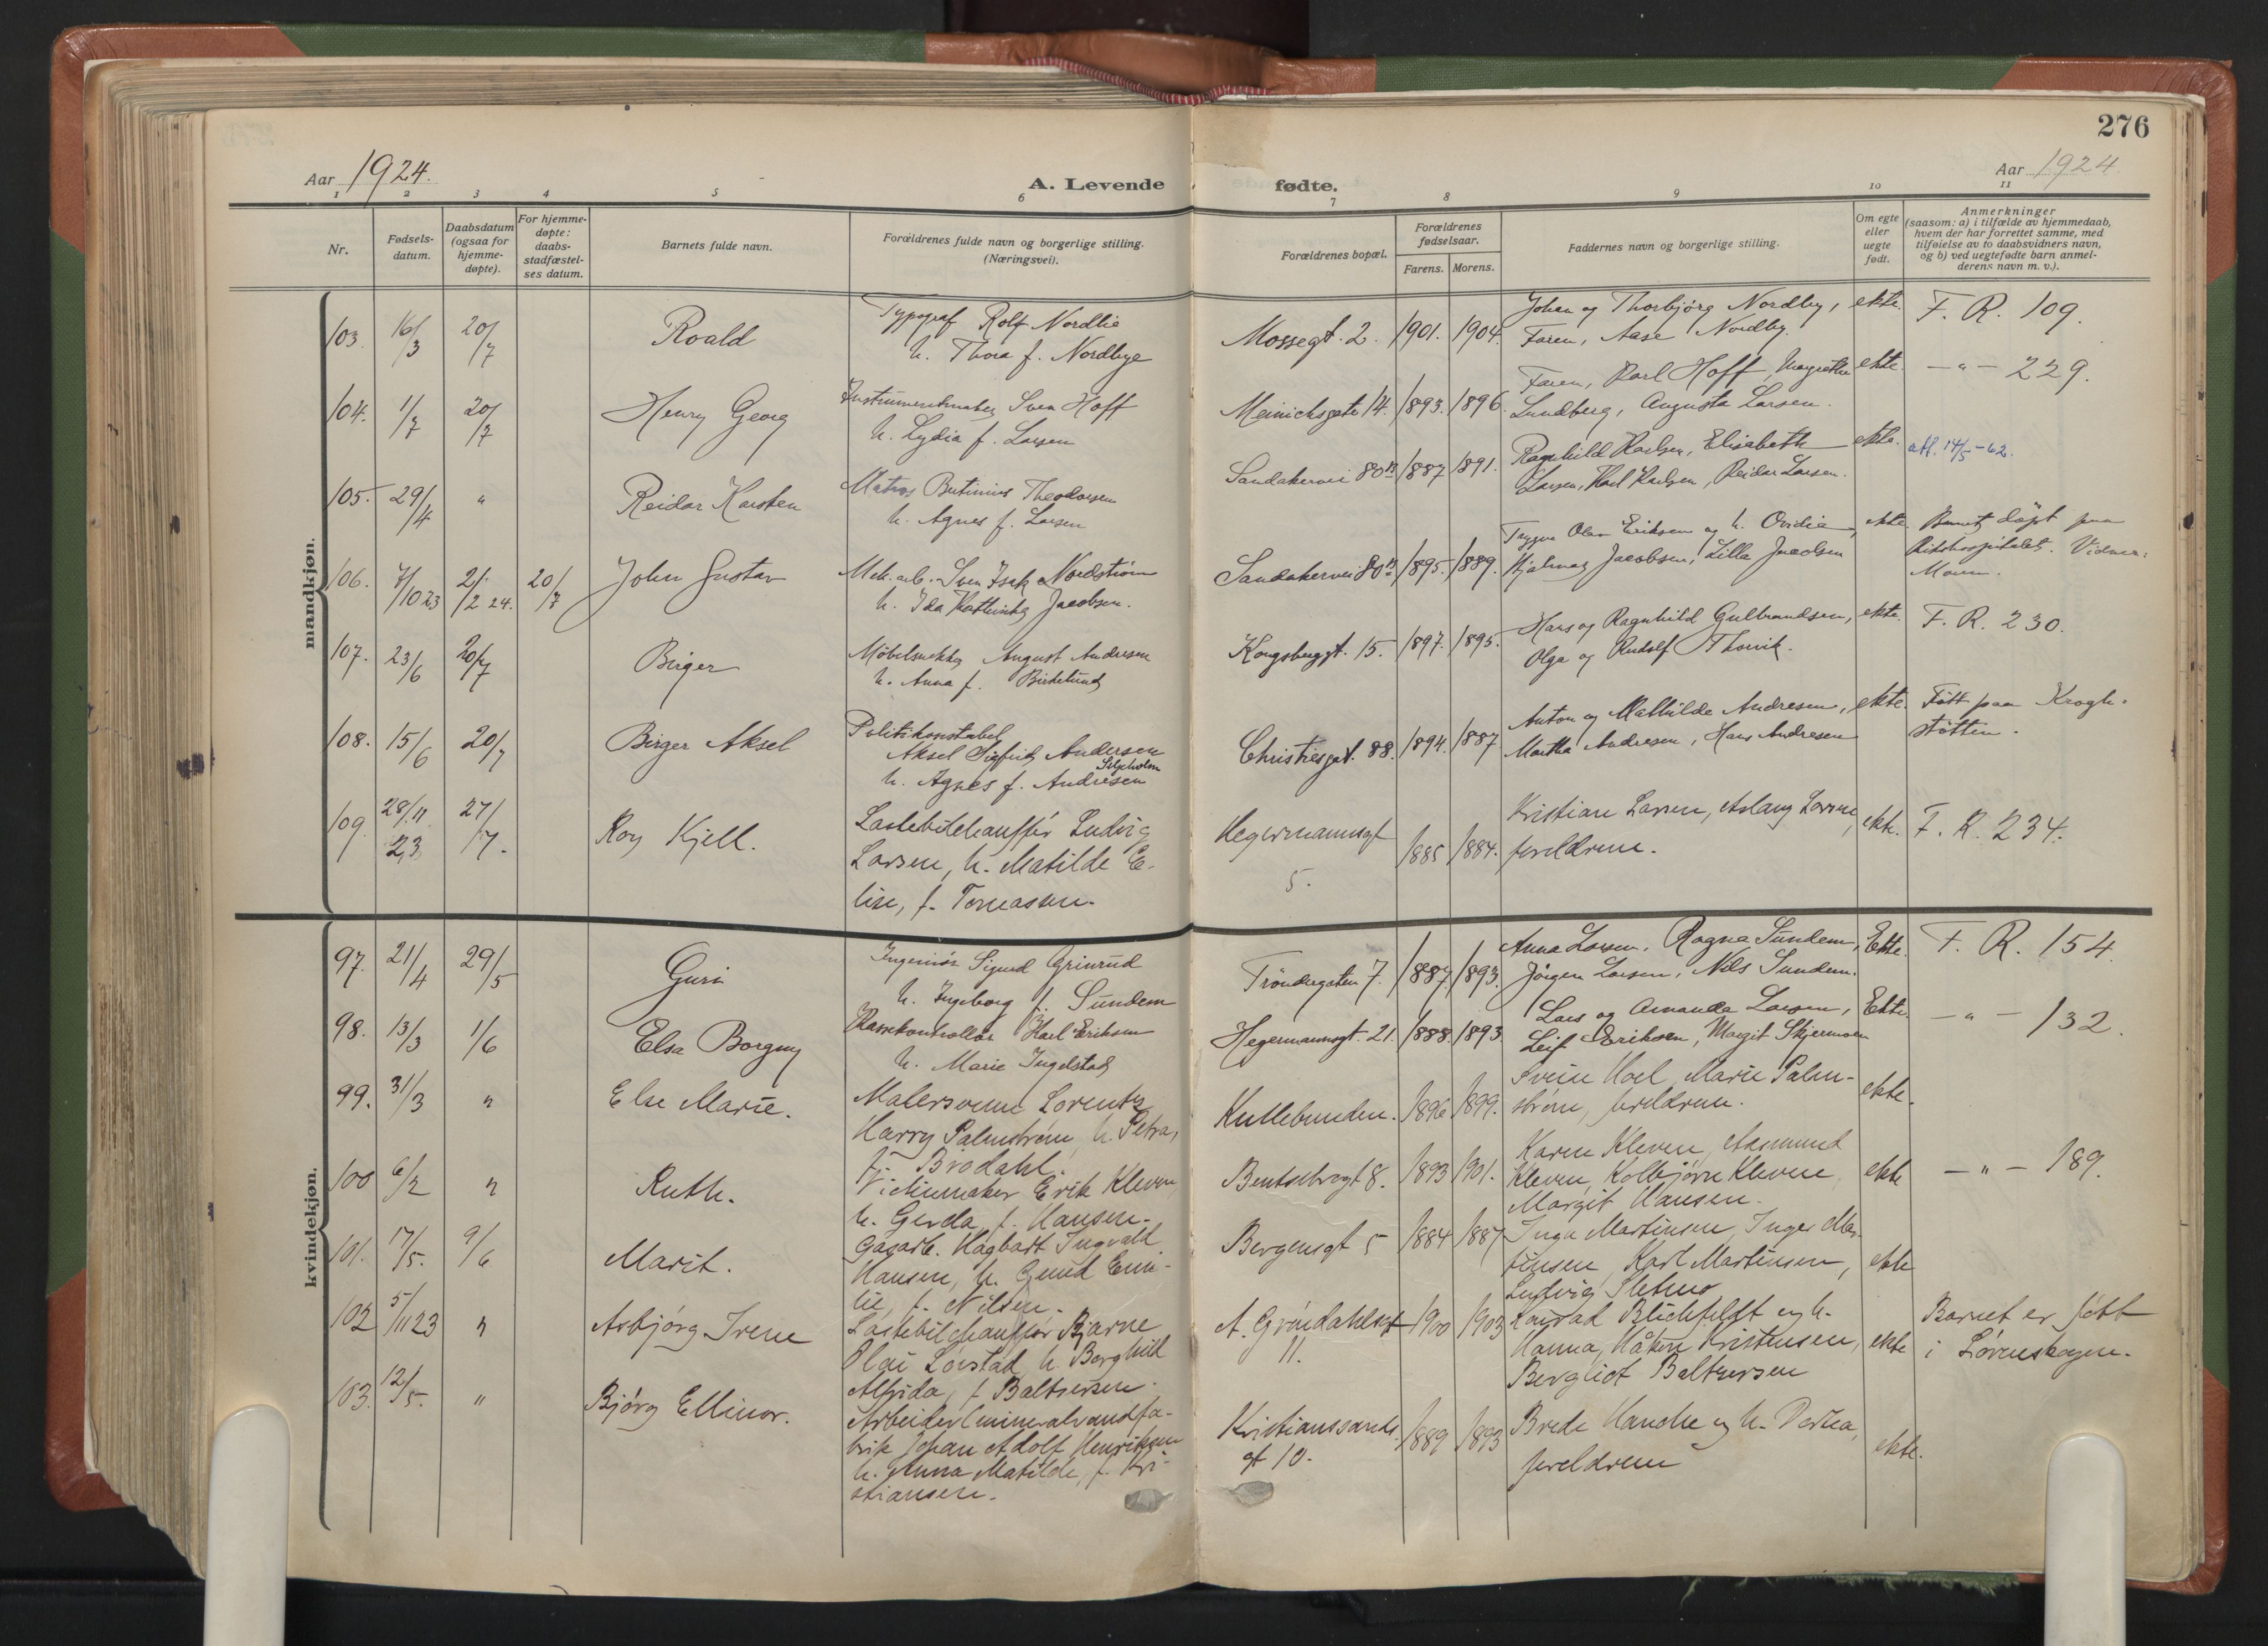 276
Aar 1924.
A. Levende
fødte.
Aar 1924
1 2 3 4 5 6 7 8 9 10 11
Nr.
Fødsels-
datum.
Daabsdatum
(ogsaa for
hjemme-
døpte).
For hjemme-
døpte:
daabs-
stadfæstel-
ses datum.
Barnets fulde navn.
Forældrenes fulde navn og borgerlige stilling.
(Næringsvei).
Forældrenes bopæl.
Forældrenes
fødselsaar.
Farens. Morens.
Faddernes navn og borgerlige stilling.
Om egte
eller
uegte
født.
Anmerkninger
(saasom: a) i tilfælde av hjemmedaab,
hvem der har forrettet samme, med
tilføielse av to daabsvidners navn,
og b) ved uegtefødte barn anmel-
derens navn m. v.).
mandkjøn.
103. 16/3 20/7 Roald
Typograf Rolf Nordlie
h. Thora f. Nordbye
Mossegt. 2. 1901. 1904.
Johan og Thorbjørg Nordby,
Faren, Aase Nordby.
ekte. F. R. 109.
104. 1/7 20/7 Henry Georg
Instrumentmaker Sven Hoff
h. Lydia f. Larsen
Meinichsgate 14. 1893. 1896.
Faren, Karl Hoff, Margrethe
Lundberg, Augusta Larsen.
ekte. — " — 229.
105. 29/4 " Reidar Karsten
Matros Butinius Theodorsen
h. Agnes f. Larsen
Sandakervei 80B 1887 1891.
Ragnhild Karlsen, Elisabeth
Larsen, Karl Karlsen, Reidar Larsen.
ekte. att. 14/5-62.
106. 7/10 23 2/2 24. 20/7 John Gustav
Mek. arb. Sven Isak Nordstrøm
h. Ida Kathinka Jacobsen.
Sandakervei 80B 1895. 1889.
Trygve Olav Eriksen og h. Ovidia,
Hjalmar Jacobsen, Lilla Jacobsen
ekte. Barnet døpt paa
Rikshospitalet. Vidner:
107. 23/6 20/7 Birger
Møbelsnekker August Andresen
h. Anna f. Birkelund
Kongsberggt. 15. 1897. 1895.
Hans og Ragnhild Gulbrandsen,
Olga og Rudolf Thorvik.
ekte. F. R. 230.
108. 15/6 20/7 Birger Aksel
Politikonstabel
Aksel Sigfrid Andersen
Stixholm
h. Agnes f. Andresen
Christiesgt. 88. 1894. 1887
Anton og Mathilde Andresen,
Martha Andresen, Hans Andresen
ekte. Født paa Krogh-
støtten.
109. 28/11 23 27/7. Roy Kjell.
Lastebilchauffør Ludvig
Larsen, h. Matilde E-
lise, f. Tomassen.
Hegermannsgt
5. 1885 1884.
Kristian Larsen, Aslaug Larsen,
foreldrene.
ekte. F. R. 234.
kvindekjøn.
97. 21/4 29/5 Guri
Ingeniør Sigurd Grinrud
h. Ingeborg f. Sundem
Trøndergaten 7. 1887. 1893.
Anna Larsen, Ragna Sundem,
Jørgen Larsen, Nils Sundem.
Ekte. F. R. 154.
98. 13/3 1/6 Elsa Borgny
Kassekontrollør Karl Eriksen
h. Marie Ingelstad
Hegermannsgt. 21. 1888. 1893.
Lars og Amanda Larsen,
Leif Eriksen, Margit Skjermoen
Ekte. — " — 132.
99. 31/3 " Else Marie.
Malersvenn Lorentz
Harry Palmstrøm, h. Petra,
f. Brodahl.
Kullebunden. 1896 1899.
Svein Hoel, Marie Palm-
strøm, foreldrene.
ekte.
100 6/2 " Ruth.
Erik Kleven,
h. Gerda, f. Hansen.
Bentsebrogt 8. 1893 1901.
Karen Kleven, Aasmund
Kleven, Kolbjørn Kleven,
Margit Hansen.
ekte — " — 189.
101. 17/5. 9/6 Marit.
Gasarb. Hagbart Ingvald
Hansen, h. Gund Emi-
lie, f. Nilsen.
Bergensgt 5 1884 1887
Inga Martinsen, Inger Mar-
tinsen, Karl Martinsen,
Ludvig Sletmo
ekte
102 5/11 23 " Asbjørg Irene
Lastebilchauffør Bjarne
Olai Lørstad, h. Borghild
Alfrida, f. Baltsersen.
A. Grøndahlsgt
11. 1900 1903
Konrad Blichfeldt og h.
Hanna, Håkon Kristensen,
Bergliot Baltzersen
ekte Barnet er født
i Lørenskogen.
103. 12/5. " Bjørg Ellinor.
Arbeider (mineralvandfa-
brik Johan Adolf Henriksen
h. Anna Matilde, f. Kri-
stiansen.
Kristianssands
gt 10. 1889 1893
Brede Hanche og h. Dortea,
foreldrene
ekte.